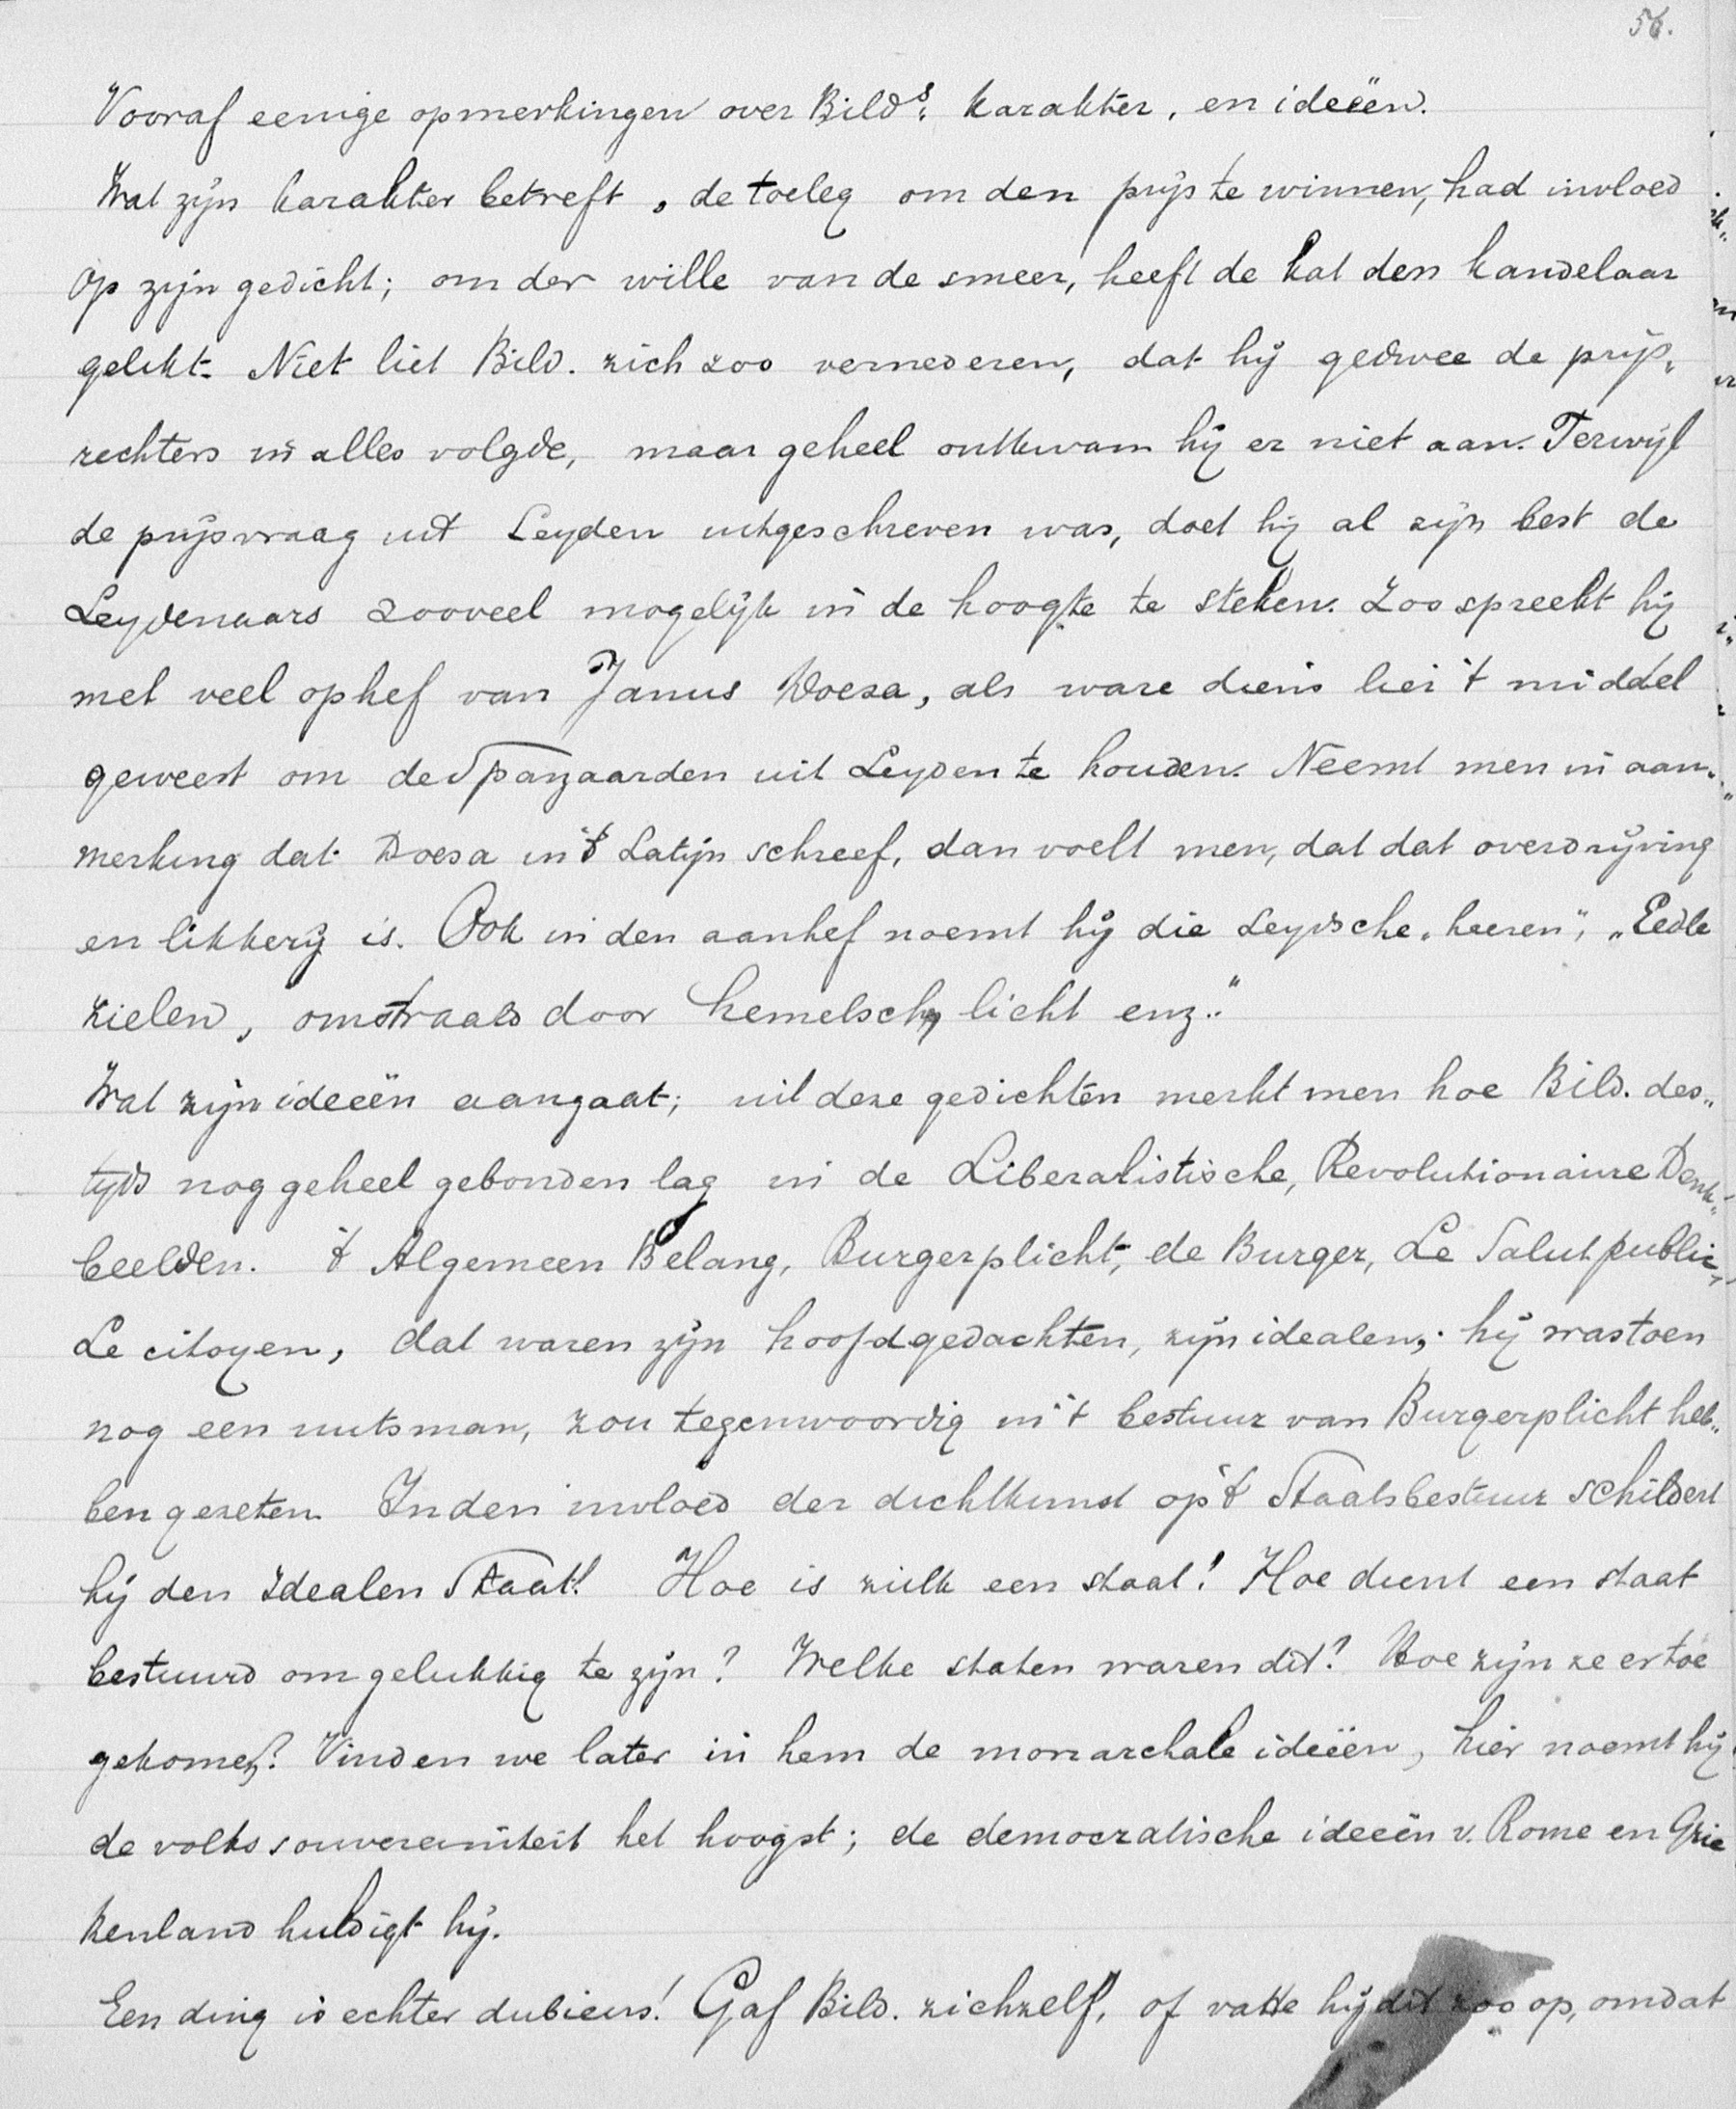 56.
Vooraf eenige opmerkingen over Bild.s karakter, en ideëen.
Wat zijn karakter betreft, de toeleg om den prijs te winnen, had invloed
op zijn gedicht; om der wille van de smeer, heeft de kat den kandelaar
gelikt. Niet liet Bild. zich zoo vernederen, dat hij gedwee de prijs„
rechters in alles volgde, maar geheel ontkwam hij er niet aan. Terwijl
de prijsvraag uit Leyden uitgeschreven was, doet hij al zijn best de
Leydenaars zooveel mogelijk in de hoogte te steken. Zoo spreekt hij
met veel ophef van Janus Doesa, als ware diens lier 't middel
geweest om de Spanjaarden uit Leyden te houden. Neemt men in aan„
merking dat Doesa in 't Latijn schreef, dan voelt men, dat dat overdrijving
en likkerij is. Ook in den aanhef noemt hij die Leydsche „heeren", „Eedle
zielen, omstraald door hemelsch licht enz."
Wat zijn ideeën aangaat; uit deze gedichten merkt men hoe Bild. des„
tijds nog geheel gebonden lag in de Liberalistische, Revolutionaire Denk„
beelden. 't Algemeen Belang, Burgerplicht, de Burger, Le Salut public,
Le citoyen, dat waren zijn hoofdgedachten, zijn idealen; hij was toen
nog een nutsman, zou tegenwoordig in 't bestuur van Burgerplicht heb„
ben gezeten. In den invloed der dichtkunst op 't Staatsbestuur schildert
hij den Idealen Staat! Hoe is zulk een staat! Hoe dient een staat
bestuurd om gelukkig te zijn? Welke staten waren dit? Hoe zijn ze ertoe
gekomen? Vinden we later in hem de monarchale ideëen, hier noemt hij
de volkssouvereiniteit het hoogst; de democratische ideeën v. Rome en Grie
kenland huldigt hij.
Een ding is echter dubieus! Gaf Bild. zichzelf, of vatte hij dit zoo op, omdat